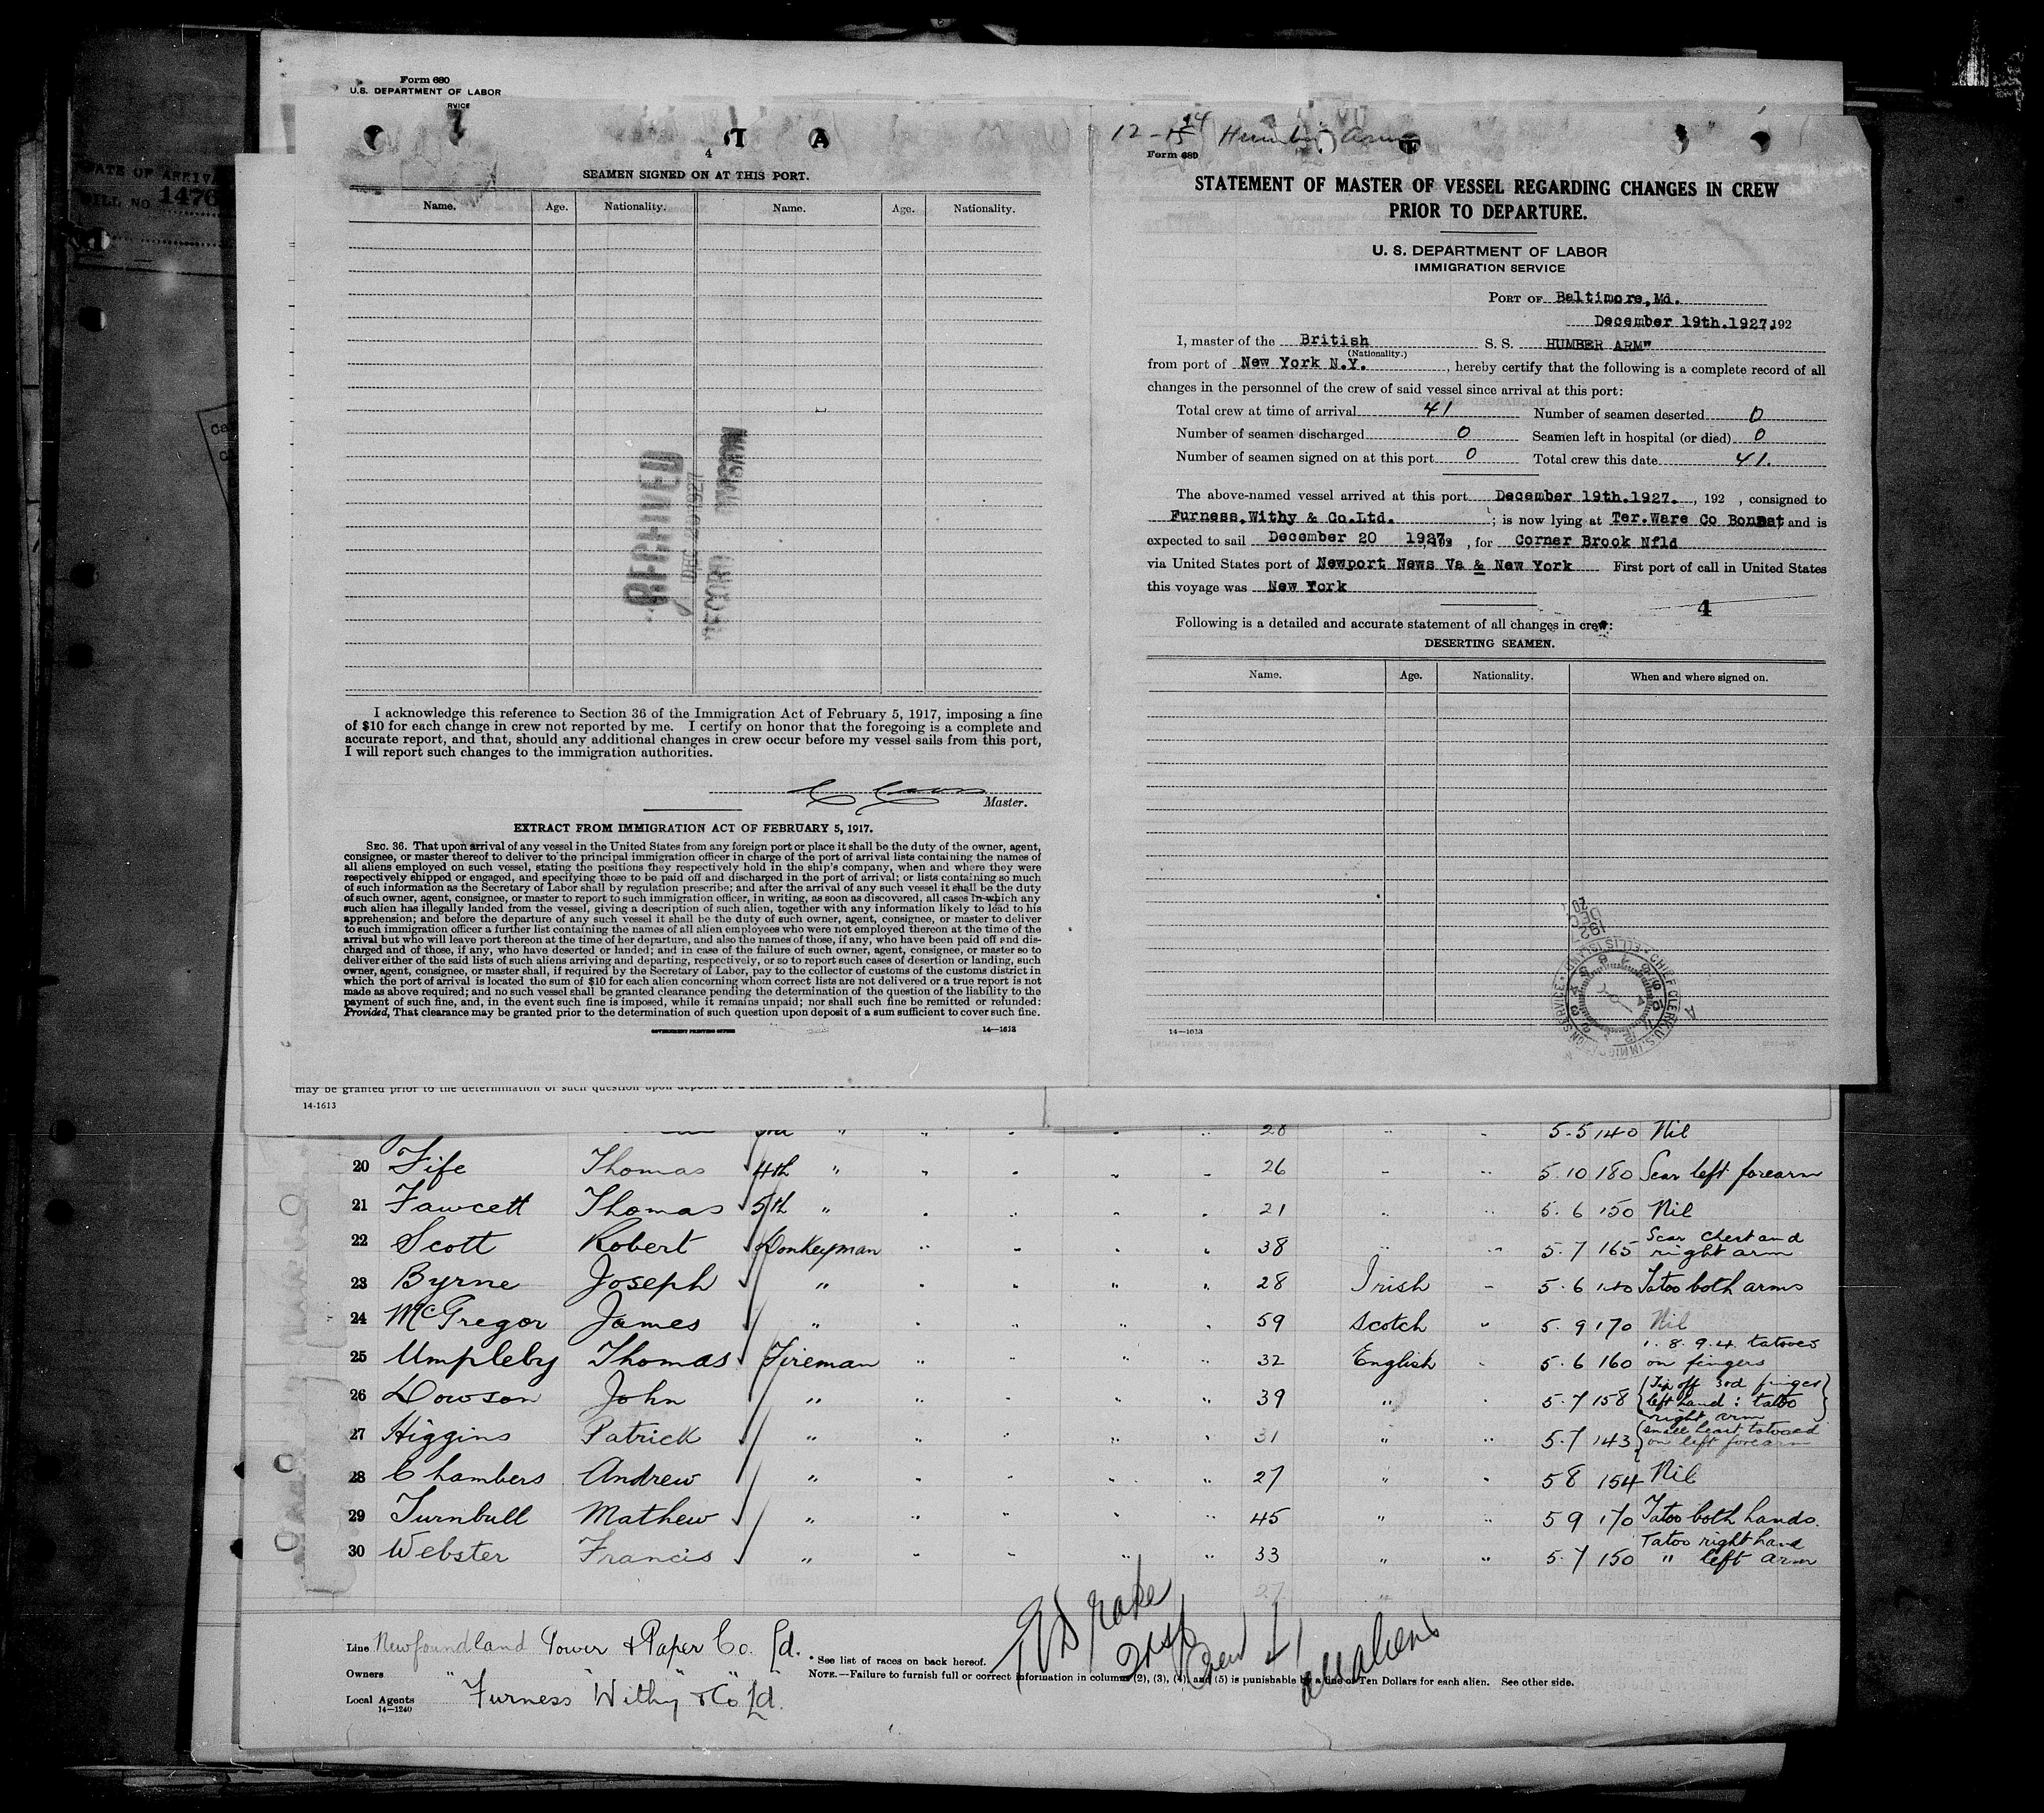 DATE OF ARRIVA
BILL NO. 1476
Form 680
U.S. DEPARTMENT OF LABOR
RVICE
4
SEAMEN SIGNED ON AT THIS PORT.
Name. Age. Nationality. Name. Age. Nationality.
RECEIVED
DEC 22 1927
RECORD DIVISION
I acknowledge this reference to Section 36 of the Immigration Act of February 5, 1917, imposing a fine
of $10 for each change in crew not reported by me. I certify on honor that the foregoing is a complete and
accurate report, and that, should any additional changes in crew occur before my vessel sails from this port,
I will report such changes to the immigration authorities.
Master.
EXTRACT FROM IMMIGRATION ACT OF FEBRUARY 5, 1917.
SEC. 36. That upon arrival of any vessel in the United States from any foreign port or place it shall be the duty of the owner, agent,
consignee, or master thereof to deliver to the principal immigration officer in charge of the port of arrival lists containing the names of
all aliens employed on such vessel, stating the positions they respectively hold in the ship's company, when and where they were
respectively shipped or engaged, and specifying those to be paid off and discharged in the port of arrival; or lists containing so much
of such information as the Secretary of Labor shall by regulation prescribe; and after the arrival of any such vessel it shall be the duty
of such owner, agent, consignee, or master to report to such immigration officer, in writing, as soon as discovered, all cases in which any
such alien has illegally landed from the vessel, giving a description of such alien, together with any information likely to lead to his
apprehension; and before the departure of any such vessel it shall be the duty of such owner, agent, consignee, or master to deliver
to such immigration officer a further list containing the names of all alien employees who were not employed thereon at the time of the
arrival but who will leave port thereon at the time of her departure, and also the names of those, if any, who have been paid off and dis-
charged and of those, if any, who have deserted or landed; and in case of the failure of such owner, agent, consignee, or master so to
deliver either of the said lists of such aliens arriving and departing, respectively, or so to report such cases of desertion or landing, such
owner, agent, consignee, or master shall, if required by the Secretary of Labor, pay to the collector of customs of the customs district in
which the port of arrival is located the sum of $10 for each alien concerning whom correct lists are not delivered or a true report is not
made as above required; and no such vessel shall be granted clearance pending the determination of the question of the liability to the
payment of such fine, and, in the event such fine is imposed, while it remains unpaid; nor shall such fine be remitted or refunded:
Provided, That clearance may be granted prior to the determination of such question upon deposit of a sum sufficient to cover such fine.
GOVERNMENT PRINTING OFFICE 14—1613
12-14 Humber Arm
Form 680
STATEMENT OF MASTER OF VESSEL REGARDING CHANGES IN CREW
PRIOR TO DEPARTURE.
U. S. DEPARTMENT OF LABOR
IMMIGRATION SERVICE
PORT OF Baltimore, Md.
December 19th.1927. 192
I, master of the British S. S. HUMBER ARM"
(Nationality.)
from port of New York N.Y. , hereby certify that the following is a complete record of all
changes in the personnel of the crew of said vessel since arrival at this port:
Total crew at time of arrival 41 Number of seamen deserted 0
Number of seamen discharged 0 Seamen left in hospital (or died) 0
Number of seamen signed on at this port 0 Total crew this date 41.
The above-named vessel arrived at this port December 19th.1927. , 192 , consigned to
Furness, Withy & Co.Ltd. ; is now lying at Ter.Ware Co Bonnat and is
expected to sail December 20 1927. , for Corner Brook Nfld
via United States port of Newport News Va & New York First port of call in United States
this voyage was New York
4
Following is a detailed and accurate statement of all changes in crew:
DESERTING SEAMEN.
Name. Age. Nationality. When and where signed on.
DEC 20 1927
CHIEF CLERK, U.S. IMMIGRATION SERVICE ELLIS ISLAND
14—1613
may be granted prior to the determination of such question upon deposit of a sum
14-1613
3rd " " " " " 28 " " 5-5 140 Nil
20 Fife Thomas 4th " " " " " 26 " " 5.10 180 Scar left forearm
21 Fawcett Thomas 5th " " " " " 21 " " 5.6 150 Nil
22 Scott Robert Donkeyman " " " " 38 " " 5.7 165 Scar chest and
right arm
23 Byrne Joseph " " " " " 28 Irish " 5.6 140 Tatoo both arms
24 McGregor James " " " " " 59 Scotch " 5.9 170 Nil
25 Umpleby Thomas Fireman " " " " 32 English " 5.6 160 1.8.9.4. tatooes
on fingers
26 Dowson John " " " " " 39 " " 5.7 158 Tip off 3rd finger
left hand : tatoo
right arm
27 Higgins Patrick " " " " " 31 " " 5.7 143 small heart tatooed
on left forearm
28 Chambers Andrew " " " " " 27 " " 5 8 154 Nil
29 Turnbull Mathew " " " " " 45 " " 5 9 170 Tatoo both hands.
30 Webster Francis " " " " " 33 " " 5.7 150 Tatoo right hand
" left arm
Line Newfoundland Power & Paper Co. Ld.
* See list of races on back hereof.
Owners " " "
NOTE.—Failure to furnish full or correct information in columns (2), (3), (4), and (5) is punishable by a fine of Ten Dollars for each alien. See other side.
Local Agents Furness Withy & Co Ld.
14—1240
Drake
Crew 41
all aliens